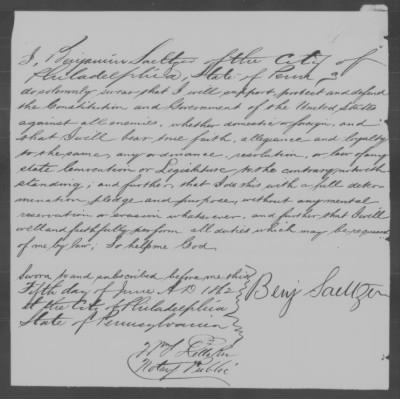 I, Benjamin Saeltzer of the City of
Philadelphia, State of Penn
do solemnly swear that I will support protect and defend
the Constitution and Government of the United States
against all enemies, whether domestic or foreign, and
that I will bear true faith, allegiance and loyalty
to the same, any ordinance, resolution, or law of any
state Convention or Legislature to the contrary notwith
standing; and further, that I do this with a full deter
mination pledge and purpose, without any mental
reservation or evasion whatsoever. and further that I will
well and faithfully perform all duties which may be required
of me by law; So help me God.
Sworn to and subscribed before me this
Fifth day of June A D 1862
at the City of Philadelphia
State of Pennsylvania
Benj Saeltzer
Notary Public